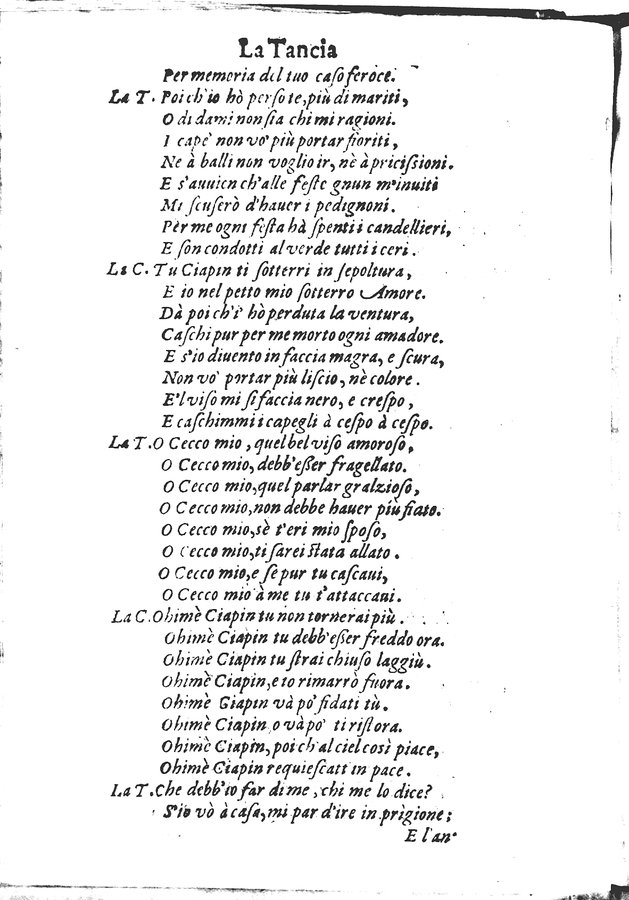 La Tancia
Per memoria del tuo caso feroce.
La T. Poi ch'io hò perso te, più di mariti,
O di dami non sia chi mi ragioni.
I cape' non vo' più portar fioriti,
Ne à balli non voglio ir, nè à pricissioni.
E s'auuien ch'alle feste gnun m'inuiti
Mi scuserò d'hauer i pedignoni.
Per me ogni festa hà spenti i candellieri,
E son condotti al verde tutti i ceri.
La C. Tu Ciapin ti sotterri in sepoltura,
E io nel petto mio sotterro Amore.
Dà poi ch'i' hò perduta la ventura,
Caschi pur per me morto ogni amadore.
E s'io diuento in faccia magra, e scura,
Non vo' portar più liscio, nè colore.
E'l viso mi si faccia nero, e crespo,
E caschimmi i capegli à cespo à cespo.
La T. O Cecco mio, quel bel viso amoroso,
O Cecco mio, debb'esser fragellato.
O Cecco mio, quel parlar gralzioso,
O Cecco mio, non debbe hauer più fiato.
O Cecco mio, sè t'eri mio sposo,
O Cecco mio, ti sarei stata allato.
O Cecco mio, e se pur tu cascaui,
O Cecco mio à me tu t'attaccaui.
La C. Ohimè Ciapin tu non tornerai più.
Ohimè Ciapin tu debb'esser freddo ora.
Ohimè Ciapin tu strai chiuso laggiù.
Ohimè Ciapin, e io rimarrò fuora.
Ohimè Ciapin và pò' fidati tù.
Ohimè Ciapin o và pò' ti ristora.
Ohimè Ciapin, poi ch'al ciel così piace,
Ohimè Ciapin requiescatt in pace.
La T. Che debb'io far di me, chi me lo dice?
S'io vò à casa, mi par d'ire in prigione;
E l'an-